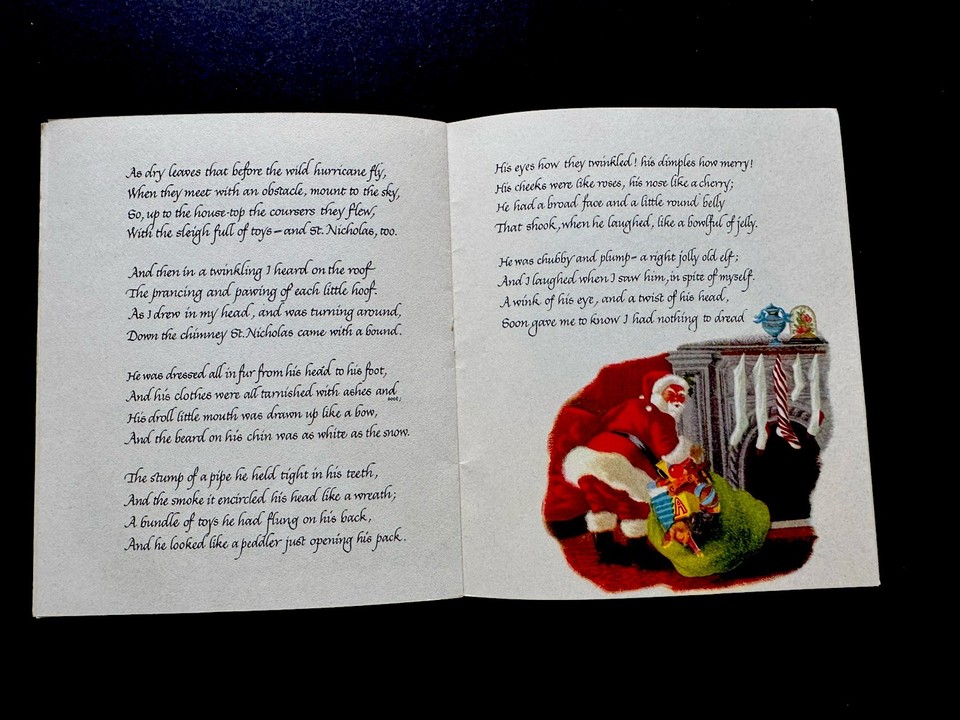 As dry leaves that before the wild hurricane fly,
When they meet with an obstacle, mount to the sky,
So, up to the house-top the coursers they flew,
With the sleigh full of toys—and St. Nicholas, too.
And then in a twinkling I heard on the roof
The prancing and pawing of each little hoof.
As I drew in my head, and was turning around,
Down the chimney St. Nicholas came with a bound.
He was dressed all in fur from his head to his foot,
And his clothes were all tarnished with ashes and
soot;
His droll little mouth was drawn up like a bow,
And the beard on his chin was as white as the snow.
The stump of a pipe he held tight in his teeth,
And the smoke it encircled his head like a wreath;
A bundle of toys he had flung on his back,
And he looked like a peddler just opening his pack.
His eyes how they twinkled! his dimples how merry!
His cheeks were like roses, his nose like a cherry;
He had a broad face and a little round belly
That shook, when he laughed, like a bowlful of jelly.
He was chubby and plump—a right jolly old elf;
And I laughed when I saw him, in spite of myself.
A wink of his eye, and a twist of his head,
Soon gave me to know I had nothing to dread
A